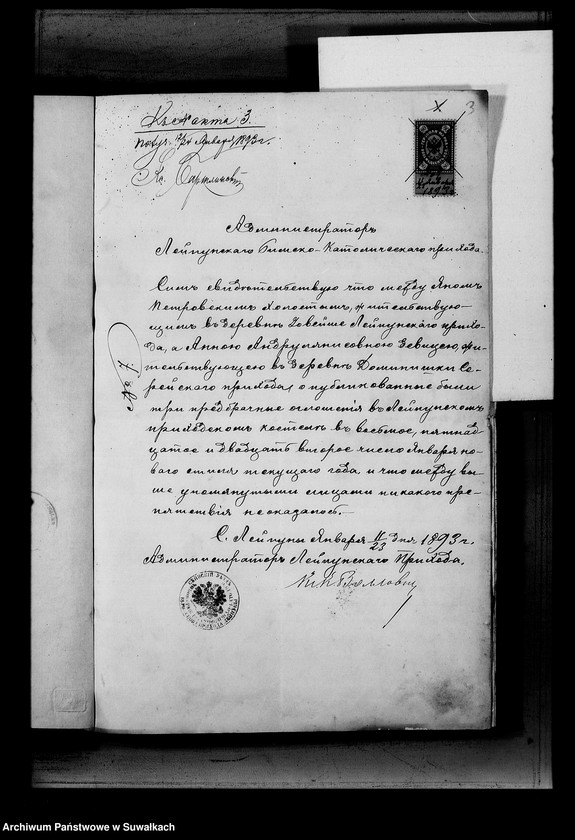 Къ акта 3.
получ. 12/24 Января 1893 г.
3
Администраторъ
Лейпунскаго Римско-Католическаго прихода.
Симъ свидѣтельствую что между Яномъ
Петровскимъ Холостымъ, жительствую-
щимъ въ деревнѣ Довейше Лейпунскаго прихо-
да, а Анною Андрулянисовною Девицею, жи-
тельствующею въ деревнѣ Доминишки Се-
рейскаго прихода, опубликованные были
три предбрачные оглошенія въ Лейпунскомъ
приходскомъ костелѣ въ восьмое, пятнад-
цатое и двадцать второе число Января но-
ваго стиля текущаго года и что между вы-
ше упомянутыми лицами никакого пре-
пятствія не оказалось.
№ 7
С. Лейпуны Января 11/23 дня 1893 г.
Администраторъ Лейпунскаго Прихода.
Archiwum Państwowe w Suwałkach